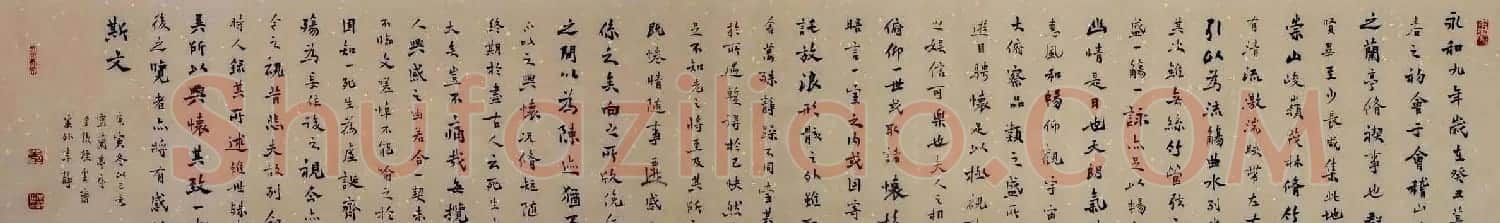 永和九年歲在癸丑暮
春之初會于會稽山
之蘭亭脩禊事也羣
賢畢至少長咸集此地
崇山峻嶺茂林脩竹
有清流激湍映帶左右
引以為流觴曲水列坐
其次雖無絲竹管弦之
盛一觴一詠亦足以暢
幽情是日也天朗氣
惠風和暢仰觀宇宙
大俯察品類之盛所
遊目騁懷足以極視
之娛信可樂也夫人之相
俯仰一世或取諸懷抱
晤言一室之內或因寄
託放浪形骸之外雖
舍萬殊靜躁不同當其
於所遇暫得於己快然
足不知老之將至及其所
既惓情隨事遷感
係之矣向之所欣俛仰
之間以為陳迹猶不
以之興懷況脩短隨
終期於盡古人云死生
大矣豈不痛哉每攬
人興感之由若合一契未
不臨文嗟悼不能喻之於
固知一死生為虛誕齊
殤為妄作後之視今亦
今之視昔悲夫故列叙
時人錄其所述雖世殊
異所以興懷其致一
後之覽者亦將有感
斯文
Shufaziliao.COM